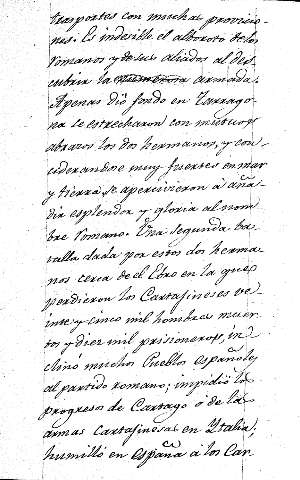 trasportes con muchas provicio-
nes. Es indesible el alboroto de los
romanos y de sus aliados al des-
cubrir la numerosa armada.
Apenas dió fondo en Tarrago-
na se estrecharon con mutuos
abrazos los dos hermanos, y con-
ciderandose muy fuertes en mar
y tierra se apercivieron à aña-
dir esplendor y gloria al nom-
bre romano. Una segunda ba-
talla dada por estos dos herma-
nos cerca de el Ebro en la que
perdieron los Cartagineses ve-
inte y cinco mil hombres muer-
tos y diez mil prisioneros, in-
clinó muchos Pueblos españoles
al partido romano; impidió los
progresos de Cartago ó de las
armas cartaginesas en Ytalia;
humilló en españa à los Car